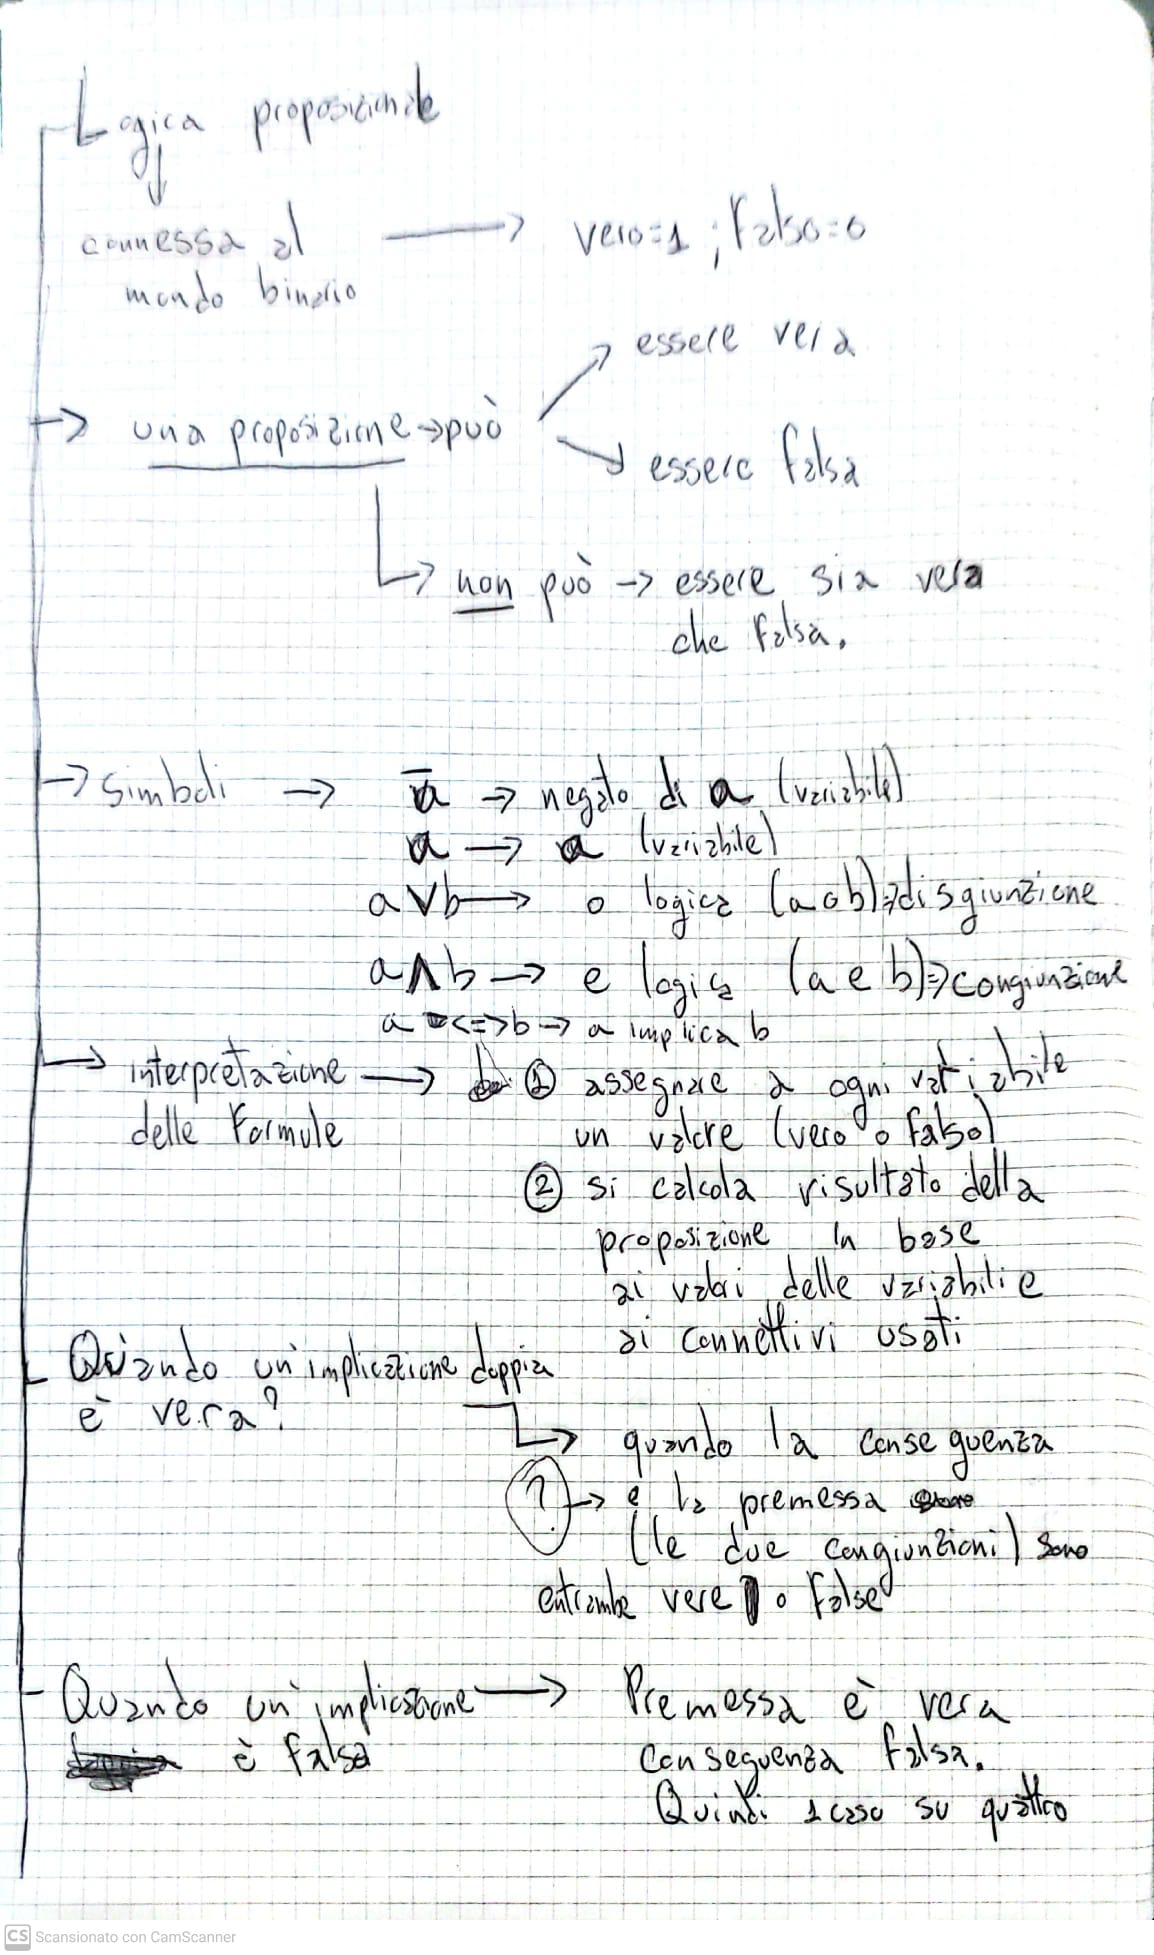 Logica proposizionale
connessa al → vero=1 ; Falso=0
mondo binario
essere vera
→ una proposizione → può
essere falsa
→ non può → essere sia vera
che falsa.
→ simboli → a̅ → negato di a (variabile)
a → a (variabile)
a∨b → o logica (a o b) ⇒ disgiunzione
a∧b → e logica (a e b) ⇒ congiunzione
a <=> b → a implica b
→ interpretazione → ① assegnare a ogni variabile
delle Formule un valore (vero o falso)
② si calcola risultato della
proposizione in base
ai valori delle variabili e
ai connettivi usati
Quando un'implicazione doppia
è vera?
→ quando la conseguenza
? → e la premessa
(le due congiunzioni) sono
entrambe vere o false
Quando un'implicazione → Premessa è vera
è falsa conseguenza falsa.
Quindi 1 caso su quattro
CS Scansionato con CamScanner